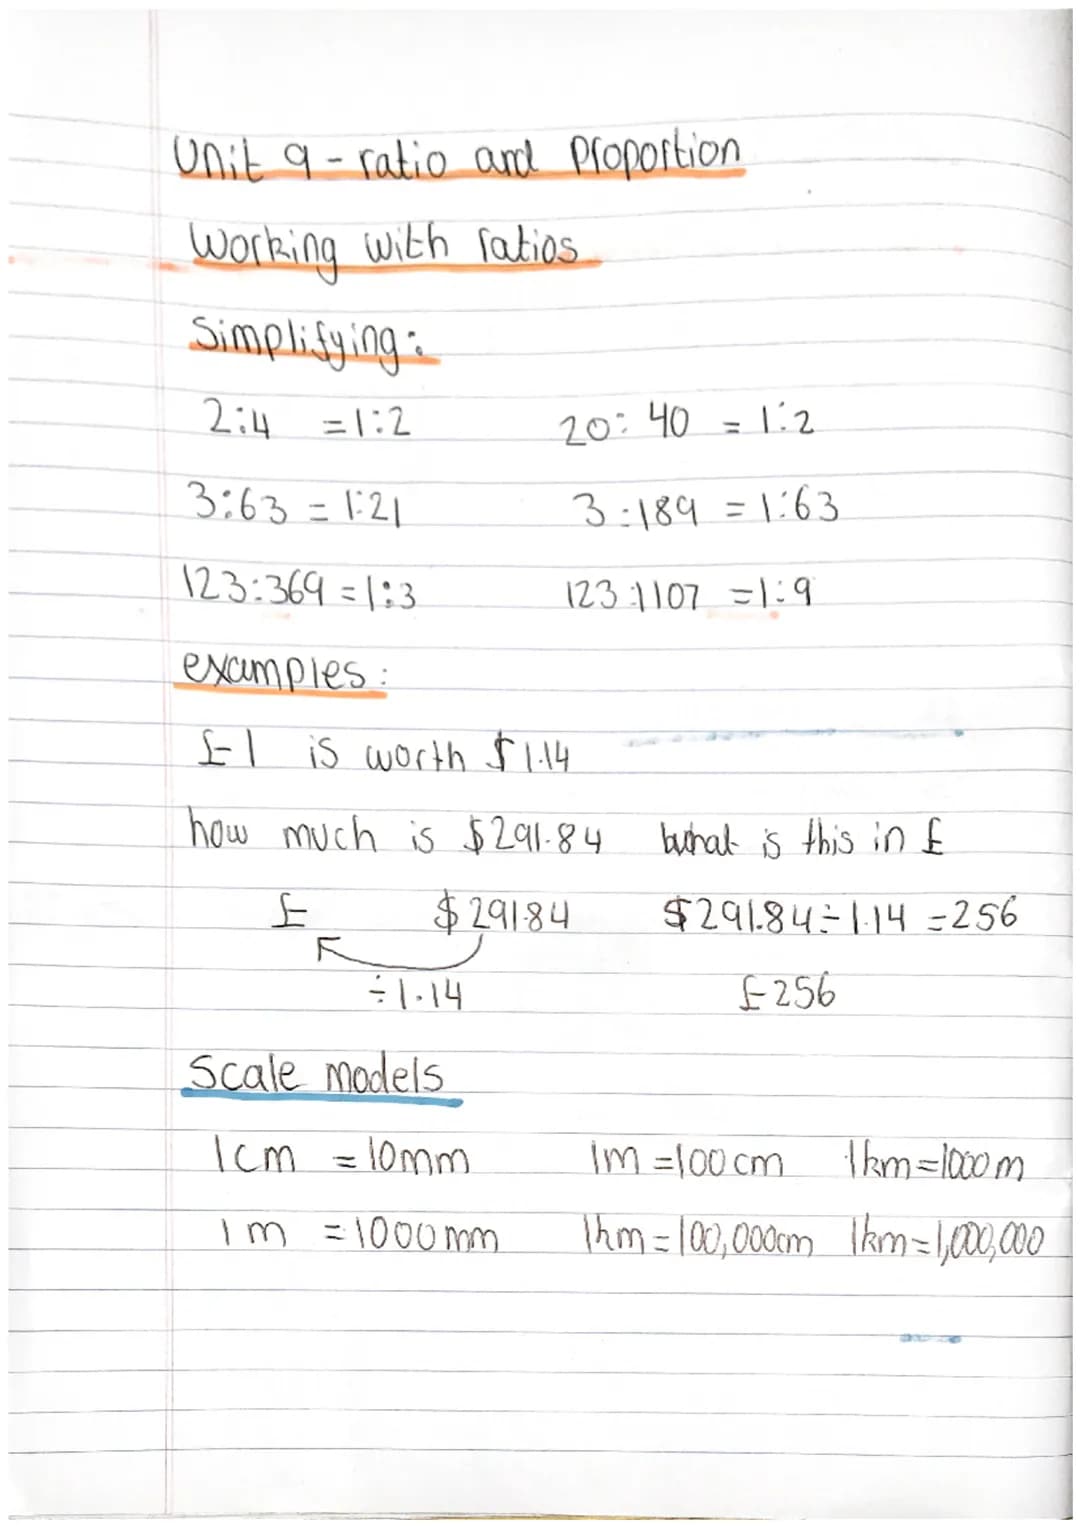 Unit 9 - ratio and proportion
Working with ratios
Simplifying:
2:4 = 1:2 20:40 = 1:2
3:63 = 1:21 3:189 = 1:63
123:369 = 1:3 123:1107 = 1:9
examples:
£1 is worth $1.14
how much is $291.84 what is this in £
£ $291.84 $291.84 ÷ 1.14 = 256
÷1.14 £256
Scale models
1cm = 10mm 1m = 100cm 1km = 1000m
1m = 1000mm 1km = 100,000cm 1km = 1,000,000